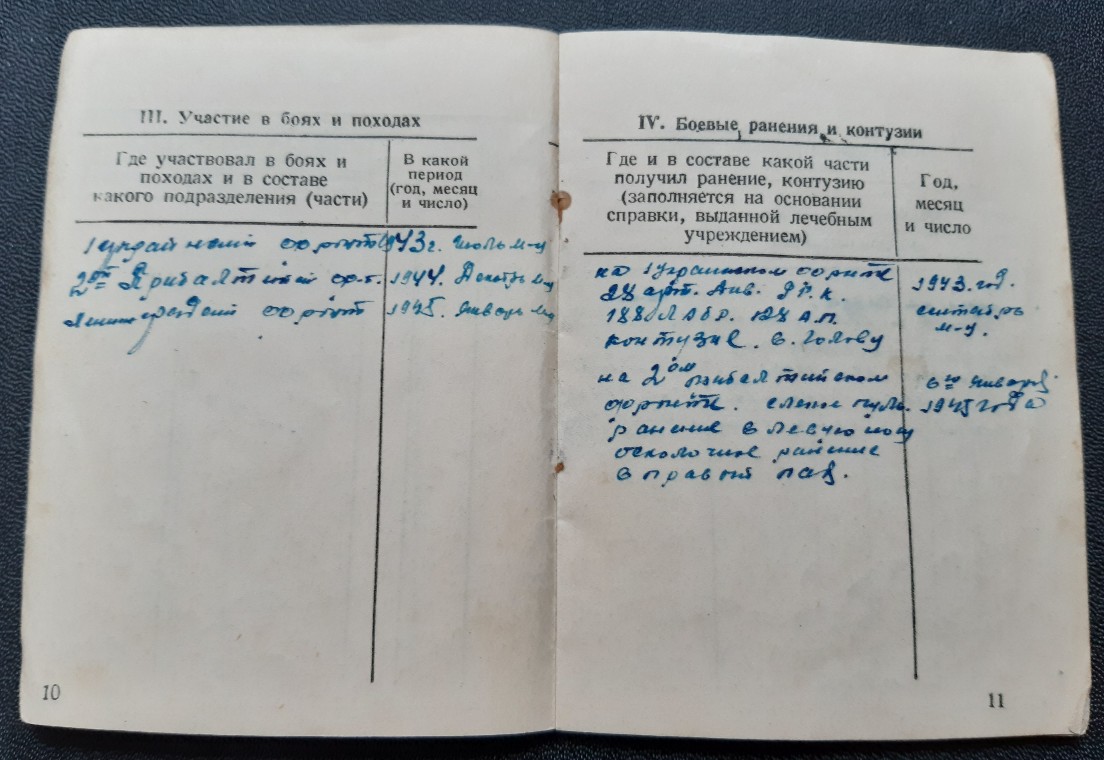 III. Участие в боях и походах
Где участвовал в боях и
походах и в составе
какого подразделения (части)
В какой
период
(год, месяц
и число)
1 украинский фронт 1943 г. Июль м-ц
2ой Прибалтийский фр-т. 1944. Декабрь м-ц
Ленинградский фронт 1945. январь м-ц
10
IV. Боевые ранения и контузии
Где и в составе какой части
получил ранение, контузию
(заполняется на основании
справки, выданной лечебным
учреждением)
Год,
месяц
и число
на 1 Украинском фронте 1943 год.
28 арт. див. Р.Г.К. сентябрь
188 ЛАБР. А.П. м-ц.
контузие. в голову
на 2ом прибалтийском 6го январ
фронте. слепое пуле. 1945 года
ранение в левую ногу
осколочное ранение
в правый пах.
11